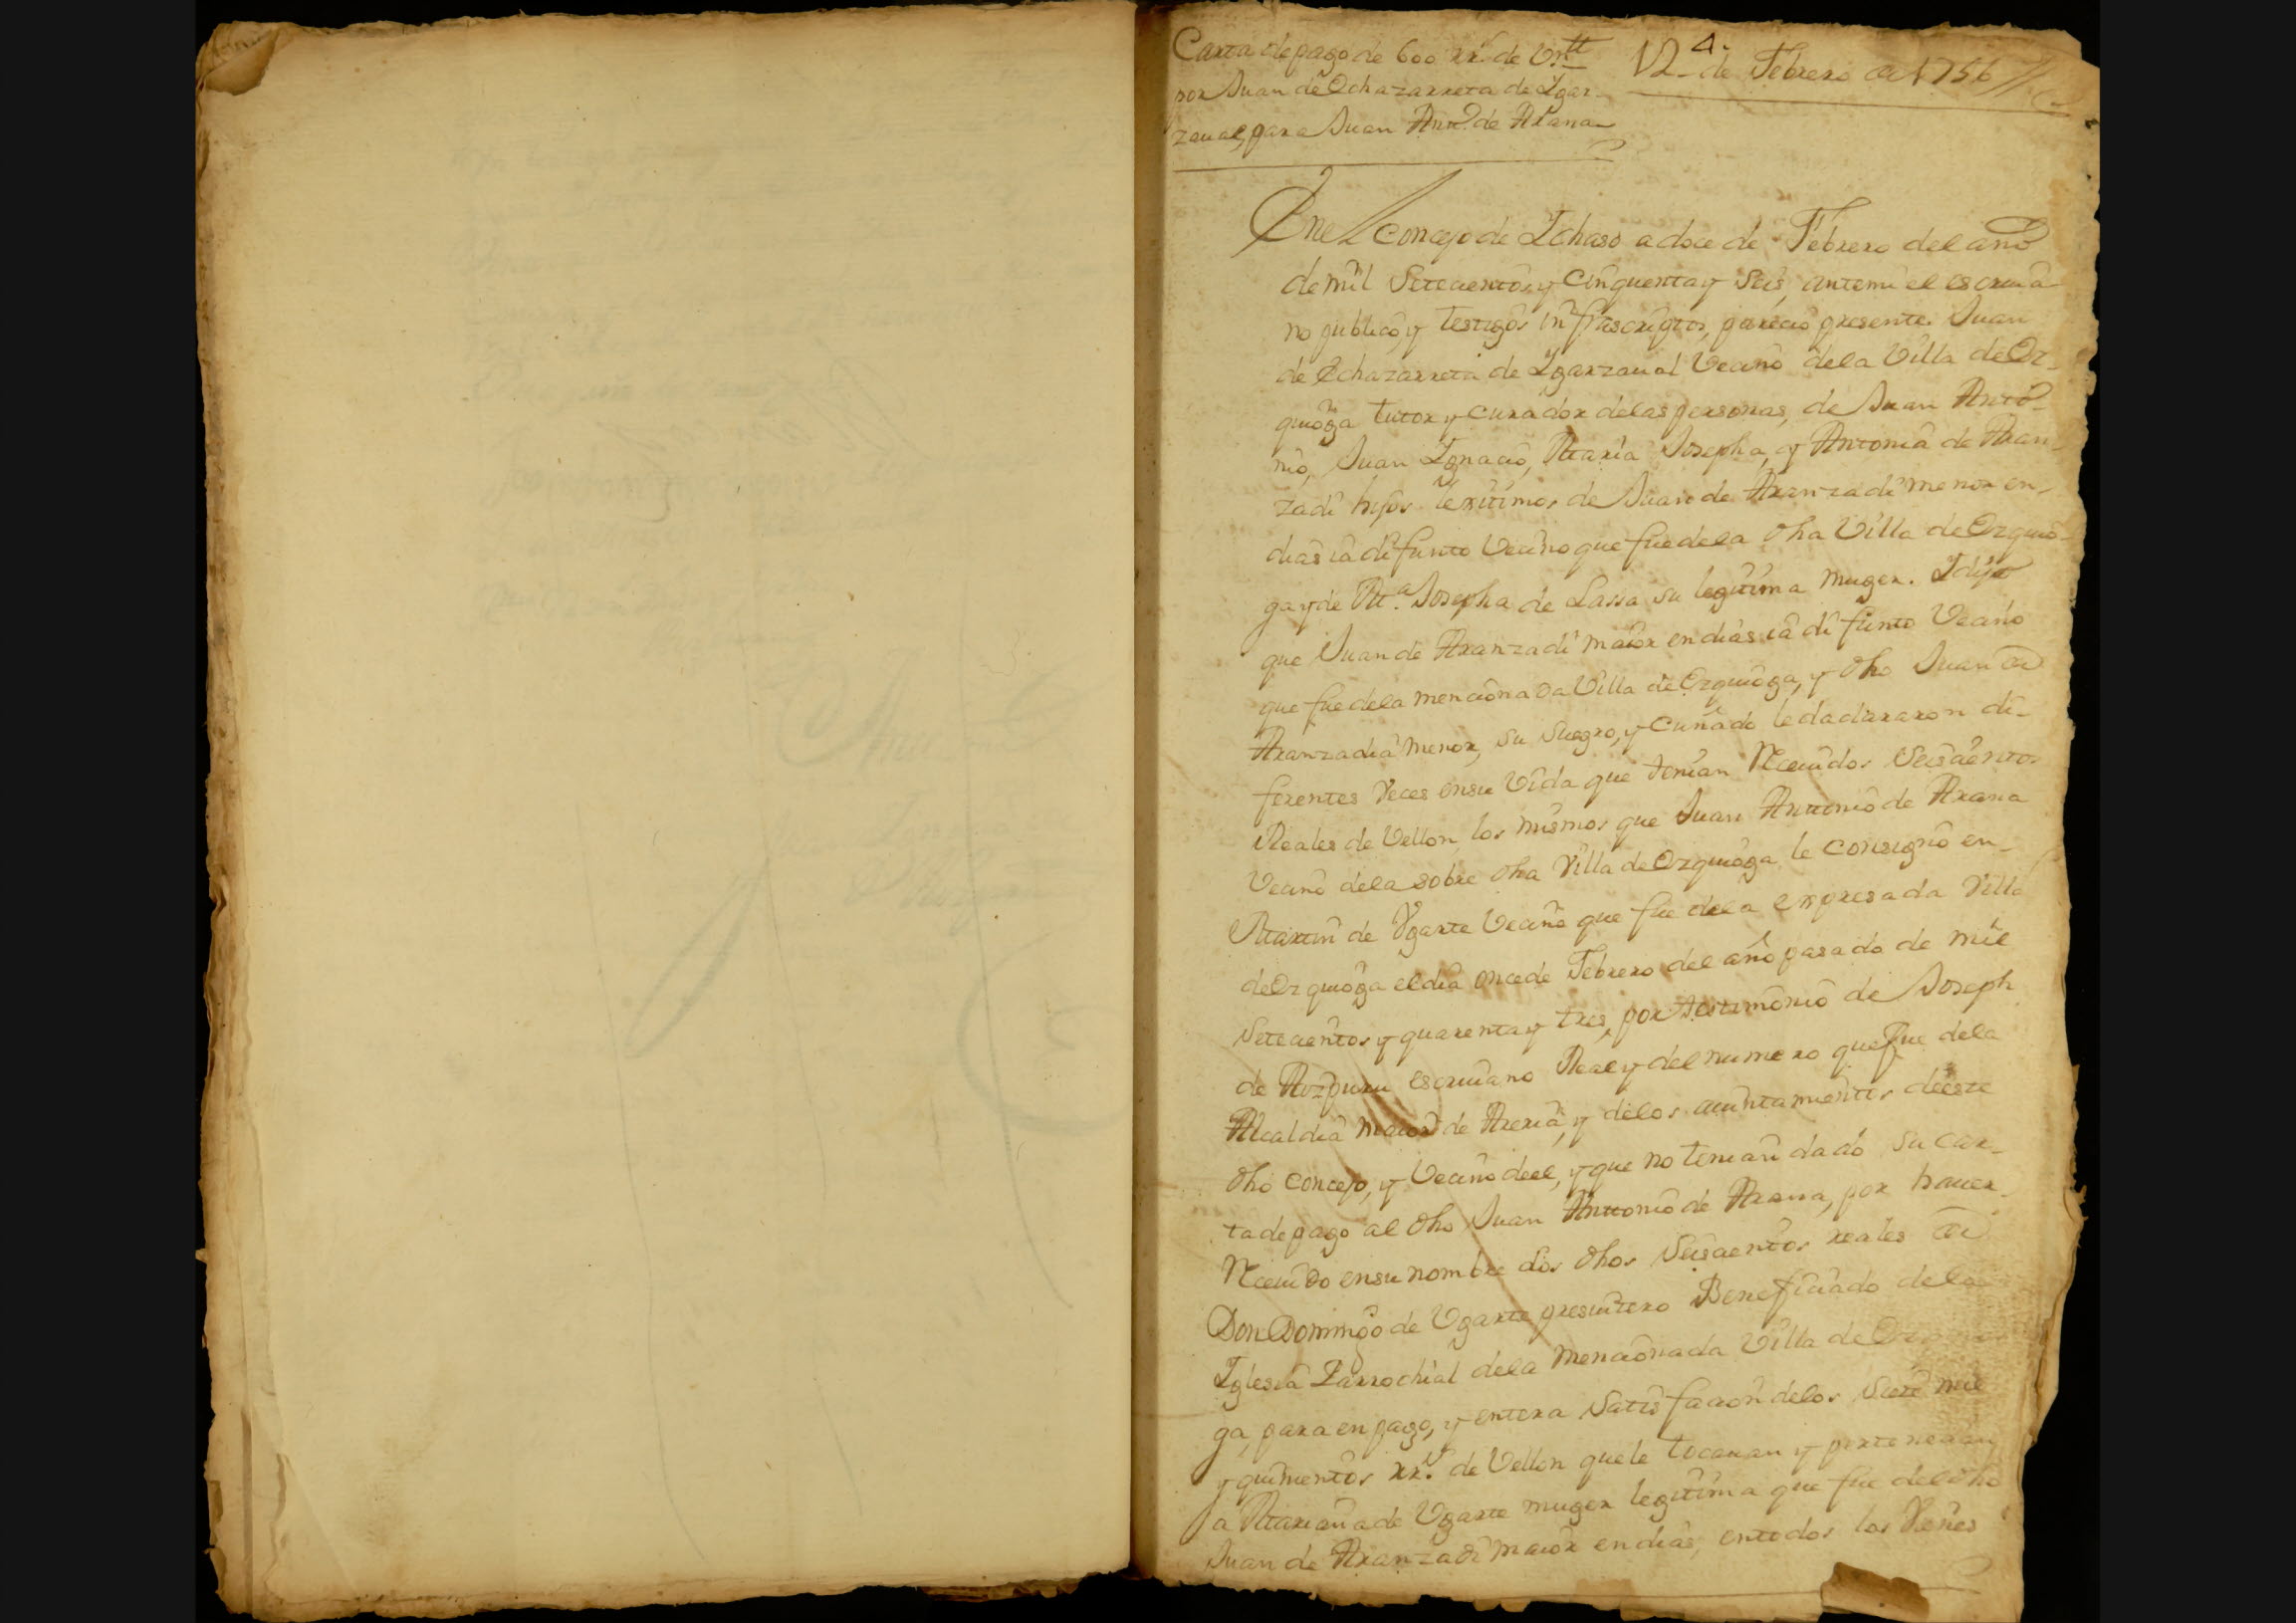 Carta de pago de 600 rr.s de V.on
por Juan de Echazarreta de Ygar-
zaual, para Juan Antt.o de Arana
4.
12 de Febrero de 1756
En el concejo de Ychaso a doce de Febrero del año
de mil Setecientos, y Cinquenta y Seis, ante mi el escriua-
no publico, y testigos infrascriptos, parecio presente Juan
de Echazarreta de Ygarzaual Vecino dela Villa de Oz-
quioga tutor y curador delas personas, de Juan Anto-
nio, Juan Ygnacio, Maria Josepha, y Antonia de Aran-
zadi hijos lexitimos de Juan de Aranzadi menor en
dias ia difunto Vecino que fue dela dha Villa de Ozquio-
ga y de M.a Josepha de Lassa su legitima muger. Y dijo
que Juan de Aranzadi maior en dias ia difunto Vecino
que fue dela mencionada Villa de Ozquioga, y dho Juan de
Aranzadi menor, su Suegro, y Cuñado le dadiraron di-
ferentes Veces en su Vida que tenian Receuidos Seiscientos
Reales de Vellon, los mismos que Juan Anttonio de Arana
Vecino dela sobre dha Villa de Ozquioga le consigno en
Martin de Vgarte Vecino que fue dela expresada Villa
de Ozquioga el dia once de Febrero del año pasado de mil
Setecientos y quarenta y tres, por testimonio de Joseph
de Aozpuru escriuano Real y del numero que fue dela
Alcaldia maior de Areria, y delos aiuntamientos de este
dho concejo, y Vecino de el, y que no tenian dado su car-
ta de pago al dho Juan Anttonio de Arana, por hauer
Receuido en su nombre dos dhos Seiscientos reales de
Don Domingo de Vgarte presuitero Beneficiado dela
Yglesia Parrochial dela mencionada Villa de Oz
ga, para en pago, y entera Satisfacion delos Siete mil
y quinientos rr.s de Vellon que le tocauan y pertenecian
a Mariana de Vgarte muger legitima que fue del dho
Juan de Aranzadi maior en dias, en todos los Vienes